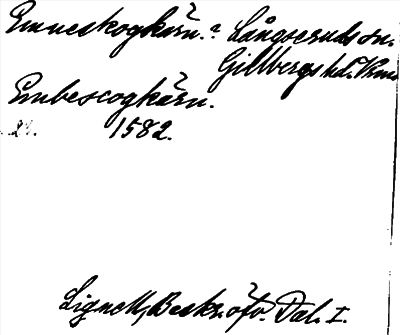 Emneskogkärn.? Långseruds sn.
Gillbergs hd. Vrml
Embescogkärn.
1582.
Lignell, Beskr. öfv. Dal. I.